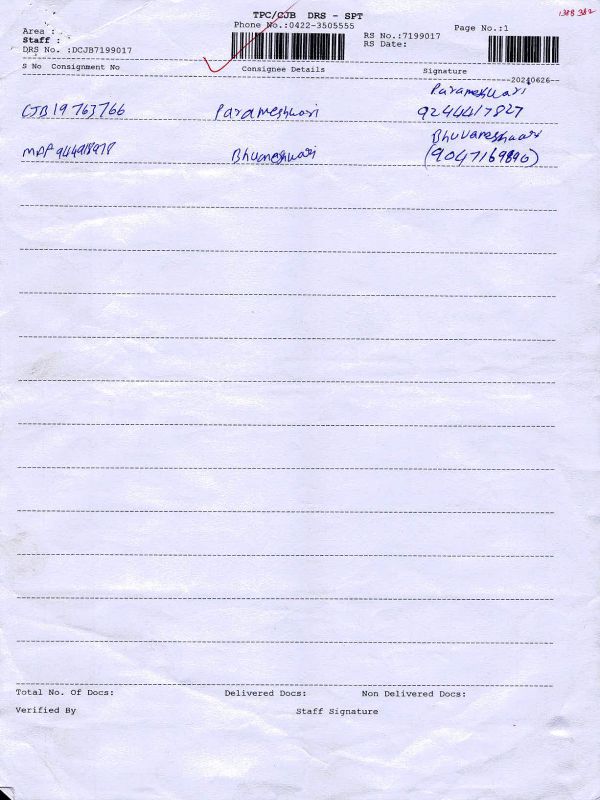 TPC/CJB DRS - SPT
1388 382
Phone No.:0422-3505555
Page No.:1
Area :
RS No.:7199017
Staff :
RS Date:
DRS No. :DCJB7199017
S No Consignment No Consignee Details Signature
20240626
CJB19763766 Parameshwari Parameshwari
9244417827
Bhuvaneshwari
(9047169890)
Total No. Of Docs: Delivered Docs: Non Delivered Docs:
Verified By Staff Signature